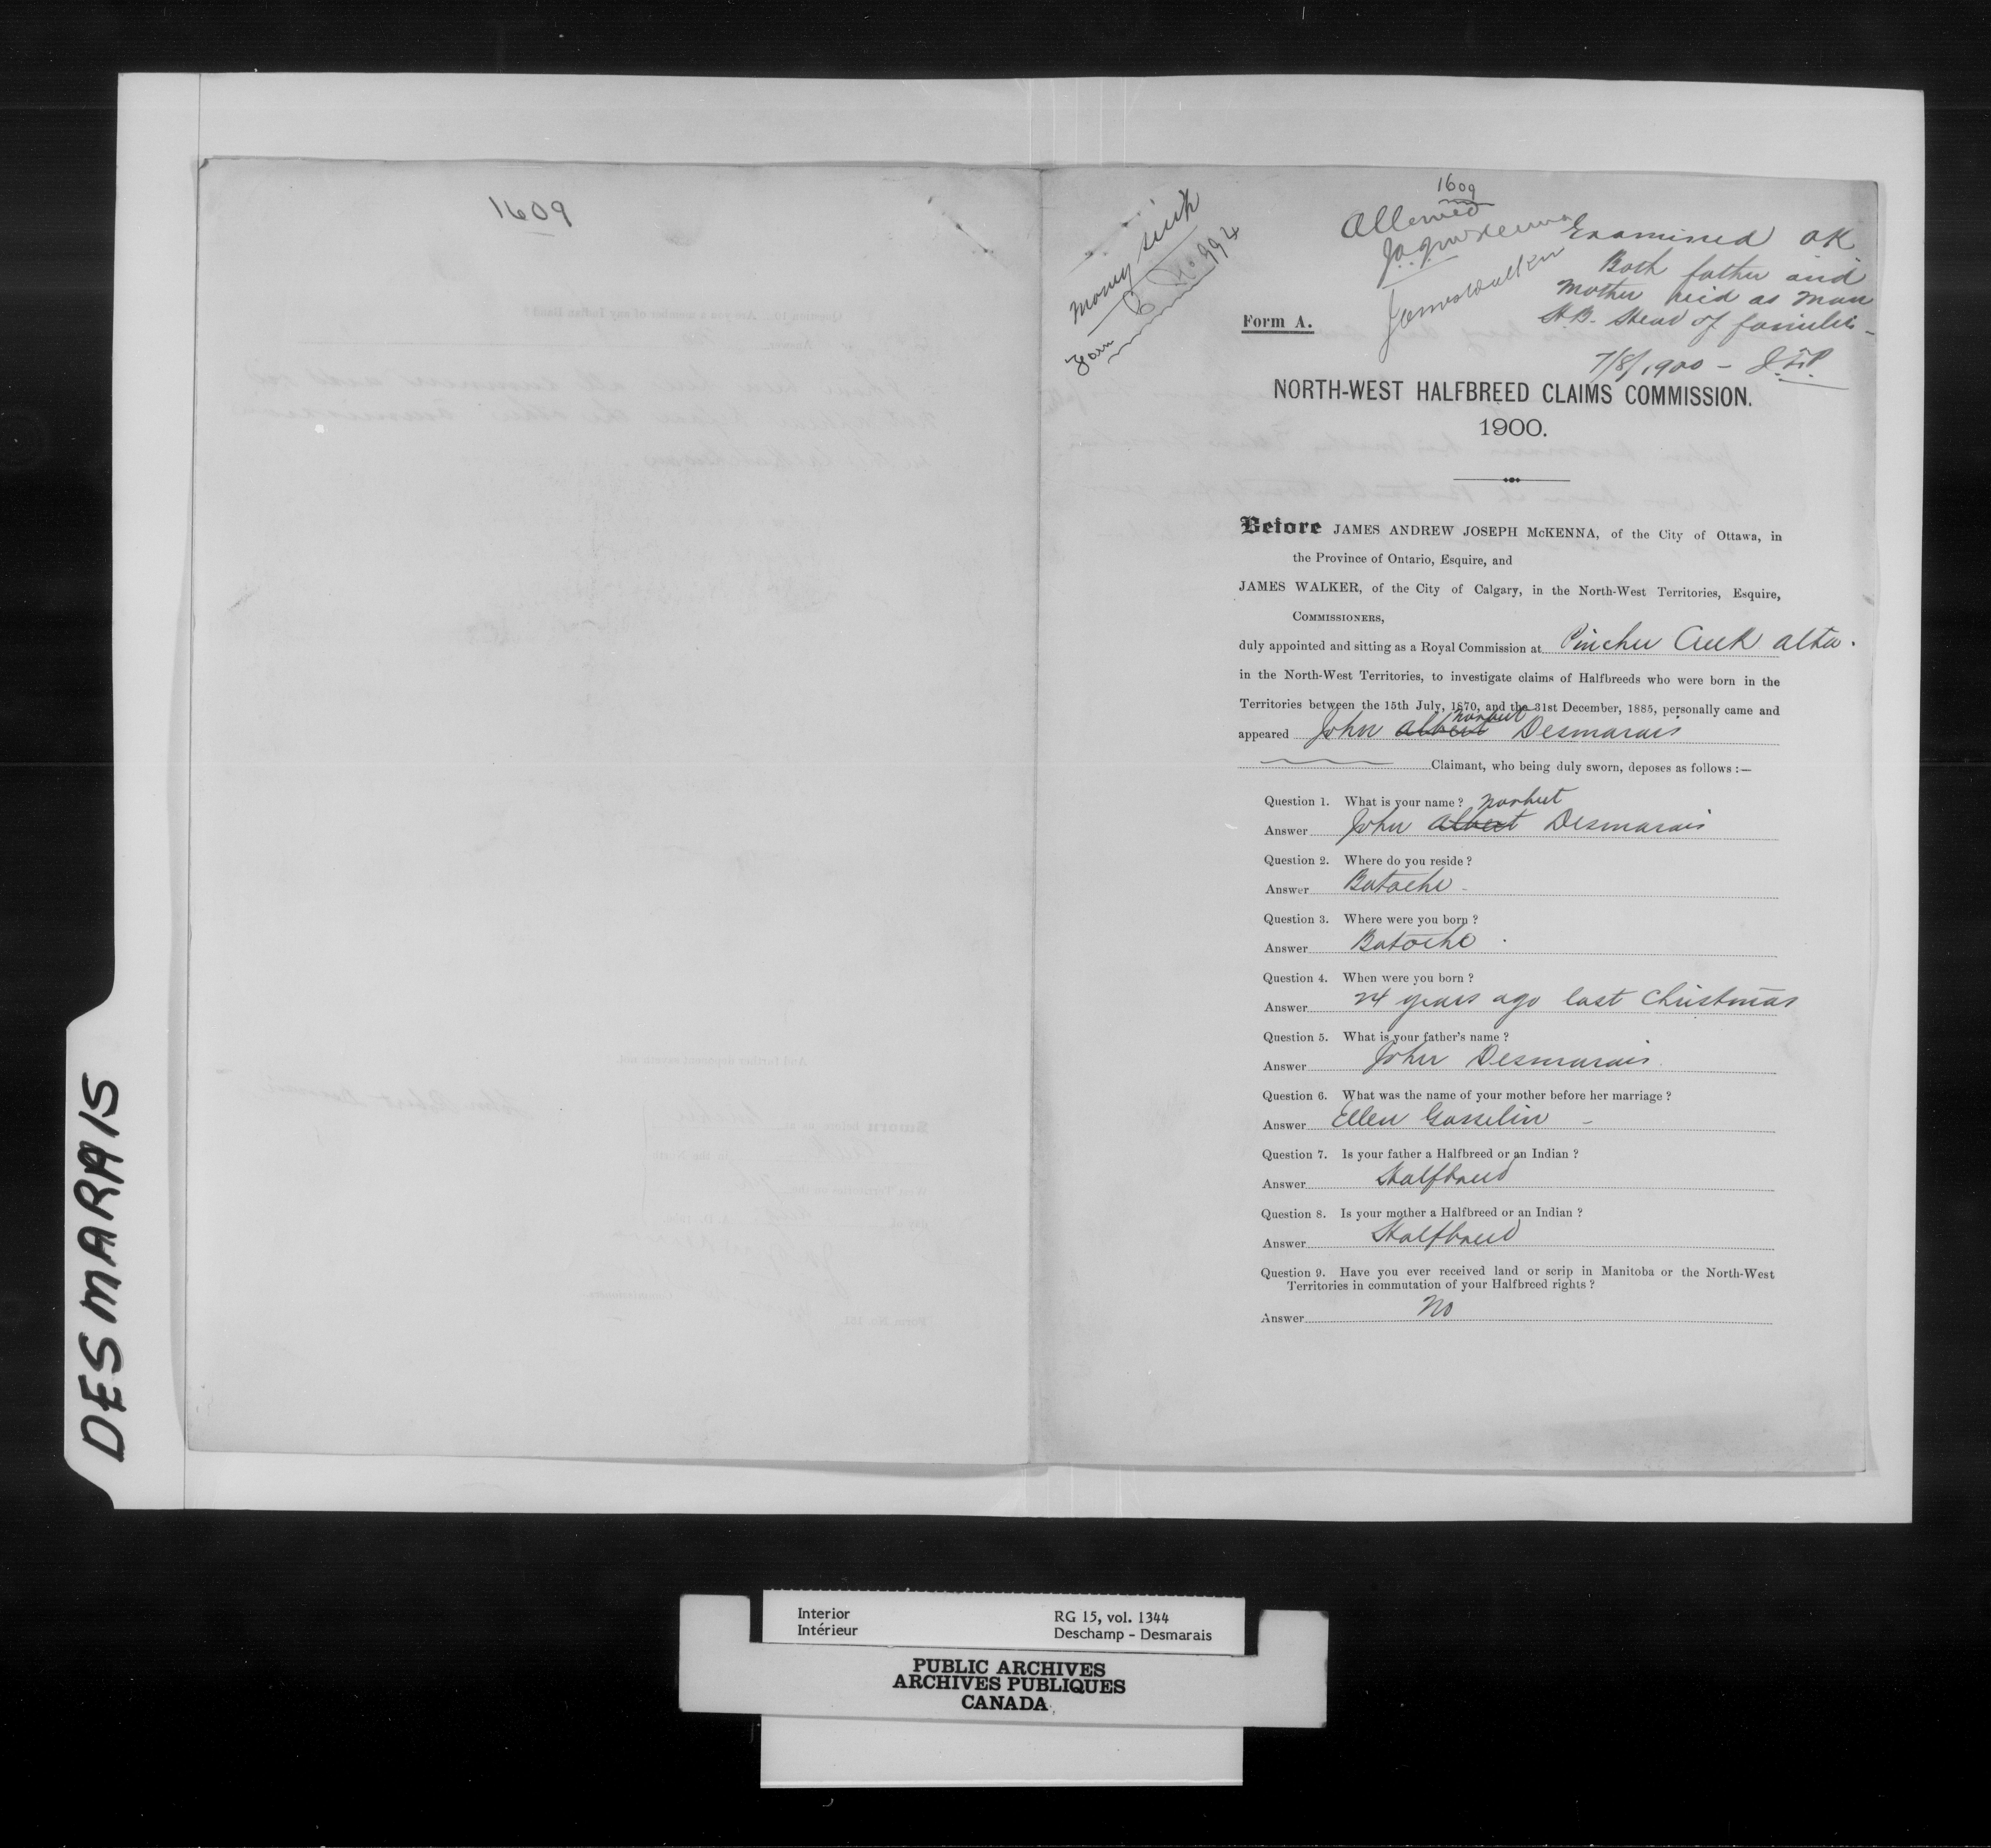 DESMARAIS
1609
1609
Allowed
J.A.J. McKenna
James Walker
Money scrip
Form C No 994
Examined OK
Both father and
Mother paid as Man
H.B. Head of families -
7/8/1900 -
Form A.
NORTH-WEST HALFBREED CLAIMS COMMISSION.
1900.
Before JAMES ANDREW JOSEPH McKENNA, of the City of Ottawa, in
the Province of Ontario, Esquire, and
JAMES WALKER, of the City of Calgary, in the North-West Territories, Esquire,
COMMISSIONERS,
duly appointed and sitting as a Royal Commission at Pincher Creek Alta.
in the North-West Territories, to investigate claims of Halfbreeds who were born in the
Territories between the 15th July, 1870, and the 31st December, 1885, personally came and
Norbert
appeared John Albert Desmarais
Claimant, who being duly sworn, deposes as follows :—
Question 1. What is your name ? Norbert
Answer John Albert Desmarais
Question 2. Where do you reside ?
Answer Batoche -
Question 3. Where were you born ?
Answer Batoche .
Question 4. When were you born ?
Answer 24 years ago last Christmas
Question 5. What is your father's name ?
Answer John Desmarais
Question 6. What was the name of your mother before her marriage ?
Answer Ellen Gosselin -
Question 7. Is your father a Halfbreed or an Indian ?
Answer Halfbreed
Question 8. Is your mother a Halfbreed or an Indian ?
Answer Halfbreed
Question 9. Have you ever received land or scrip in Manitoba or the North-West
Territories in commutation of your Halfbreed rights ?
Answer No
Interior
Intérieur
RG 15, vol. 1344
Deschamp - Desmarais
PUBLIC ARCHIVES
ARCHIVES PUBLIQUES
CANADA